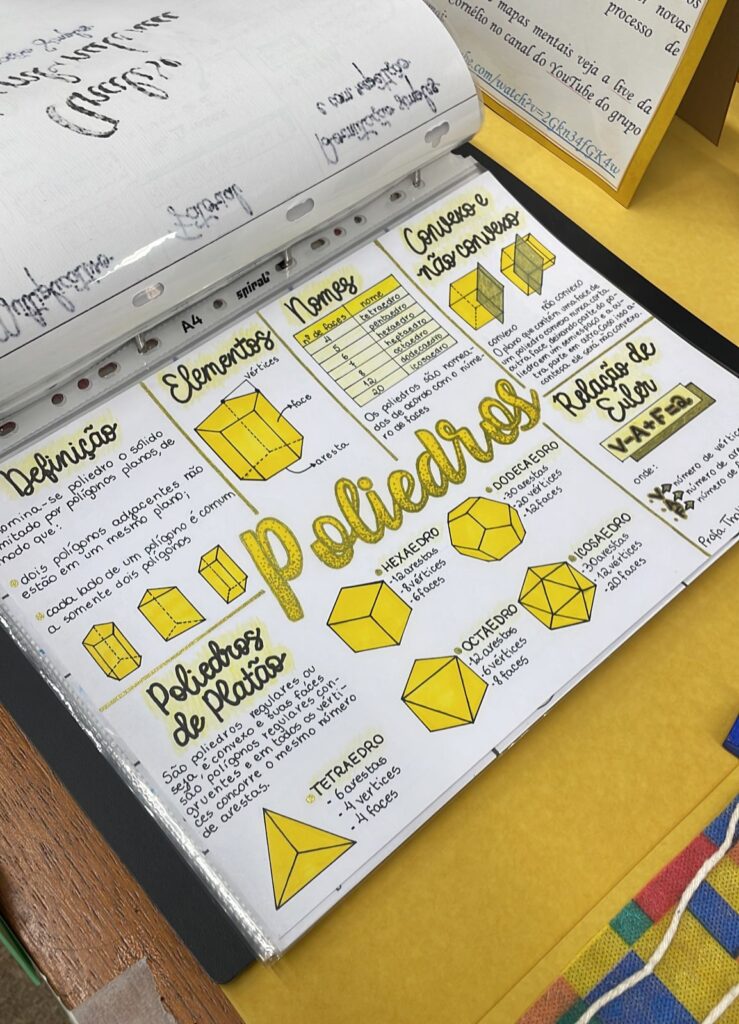 novas
processo de
mapas mentais veja a live da
Cornélio no canal do YouTube do grupo
be.com/watch?v=2Gkn34fGK4w
A4
spiral
Definição
limitado por polígonos planos, de
modo que:
dois polígonos adjacentes não
estão em um mesmo plano;
cada lado de um polígono é comum
a somente dois polígonos
Elementos
vértices
face
aresta
Nomes
nº de faces nome
4 tetraedro
5 pentaedro
6 hexaedro
7 heptaedro
8 octaedro
12 dodecaedro
20 icosaedro
Os poliedros são nomea-
dos de acordo com o núme-
ro de faces
Convexo e
não convexo
convexo não convexo
O plano que contém uma face de
um poliedro convexo nunca corta
outra face, deixando parte do po-
liedro em um semiespaço e a ou-
tra parte em outro. Caso isso a-
conteça, ele será não convexo.
Relação de
Euler
V-A+F=2
onde:
número de vértic
número de ar
número de f
Profa. Thal
Poliedros
Poliedros
de Platão
São poliedros regulares, ou
seja, é convexo e suas faces
são polígonos regulares con-
gruentes e em todos os vérti-
ces concorre o mesmo número
de arestas.
TETRAEDRO
- 6 arestas
- 4 vertices
- 4 faces
HEXAEDRO
-12 arestas
-8 vértices
-6 faces
OCTAEDRO
-12 arestas
-6 vértices
-8 faces
DODECAEDRO
-30 arestas
-20 vértices
-12 faces
ICOSAEDRO
-30 arestas
-12 vértices
-20 faces